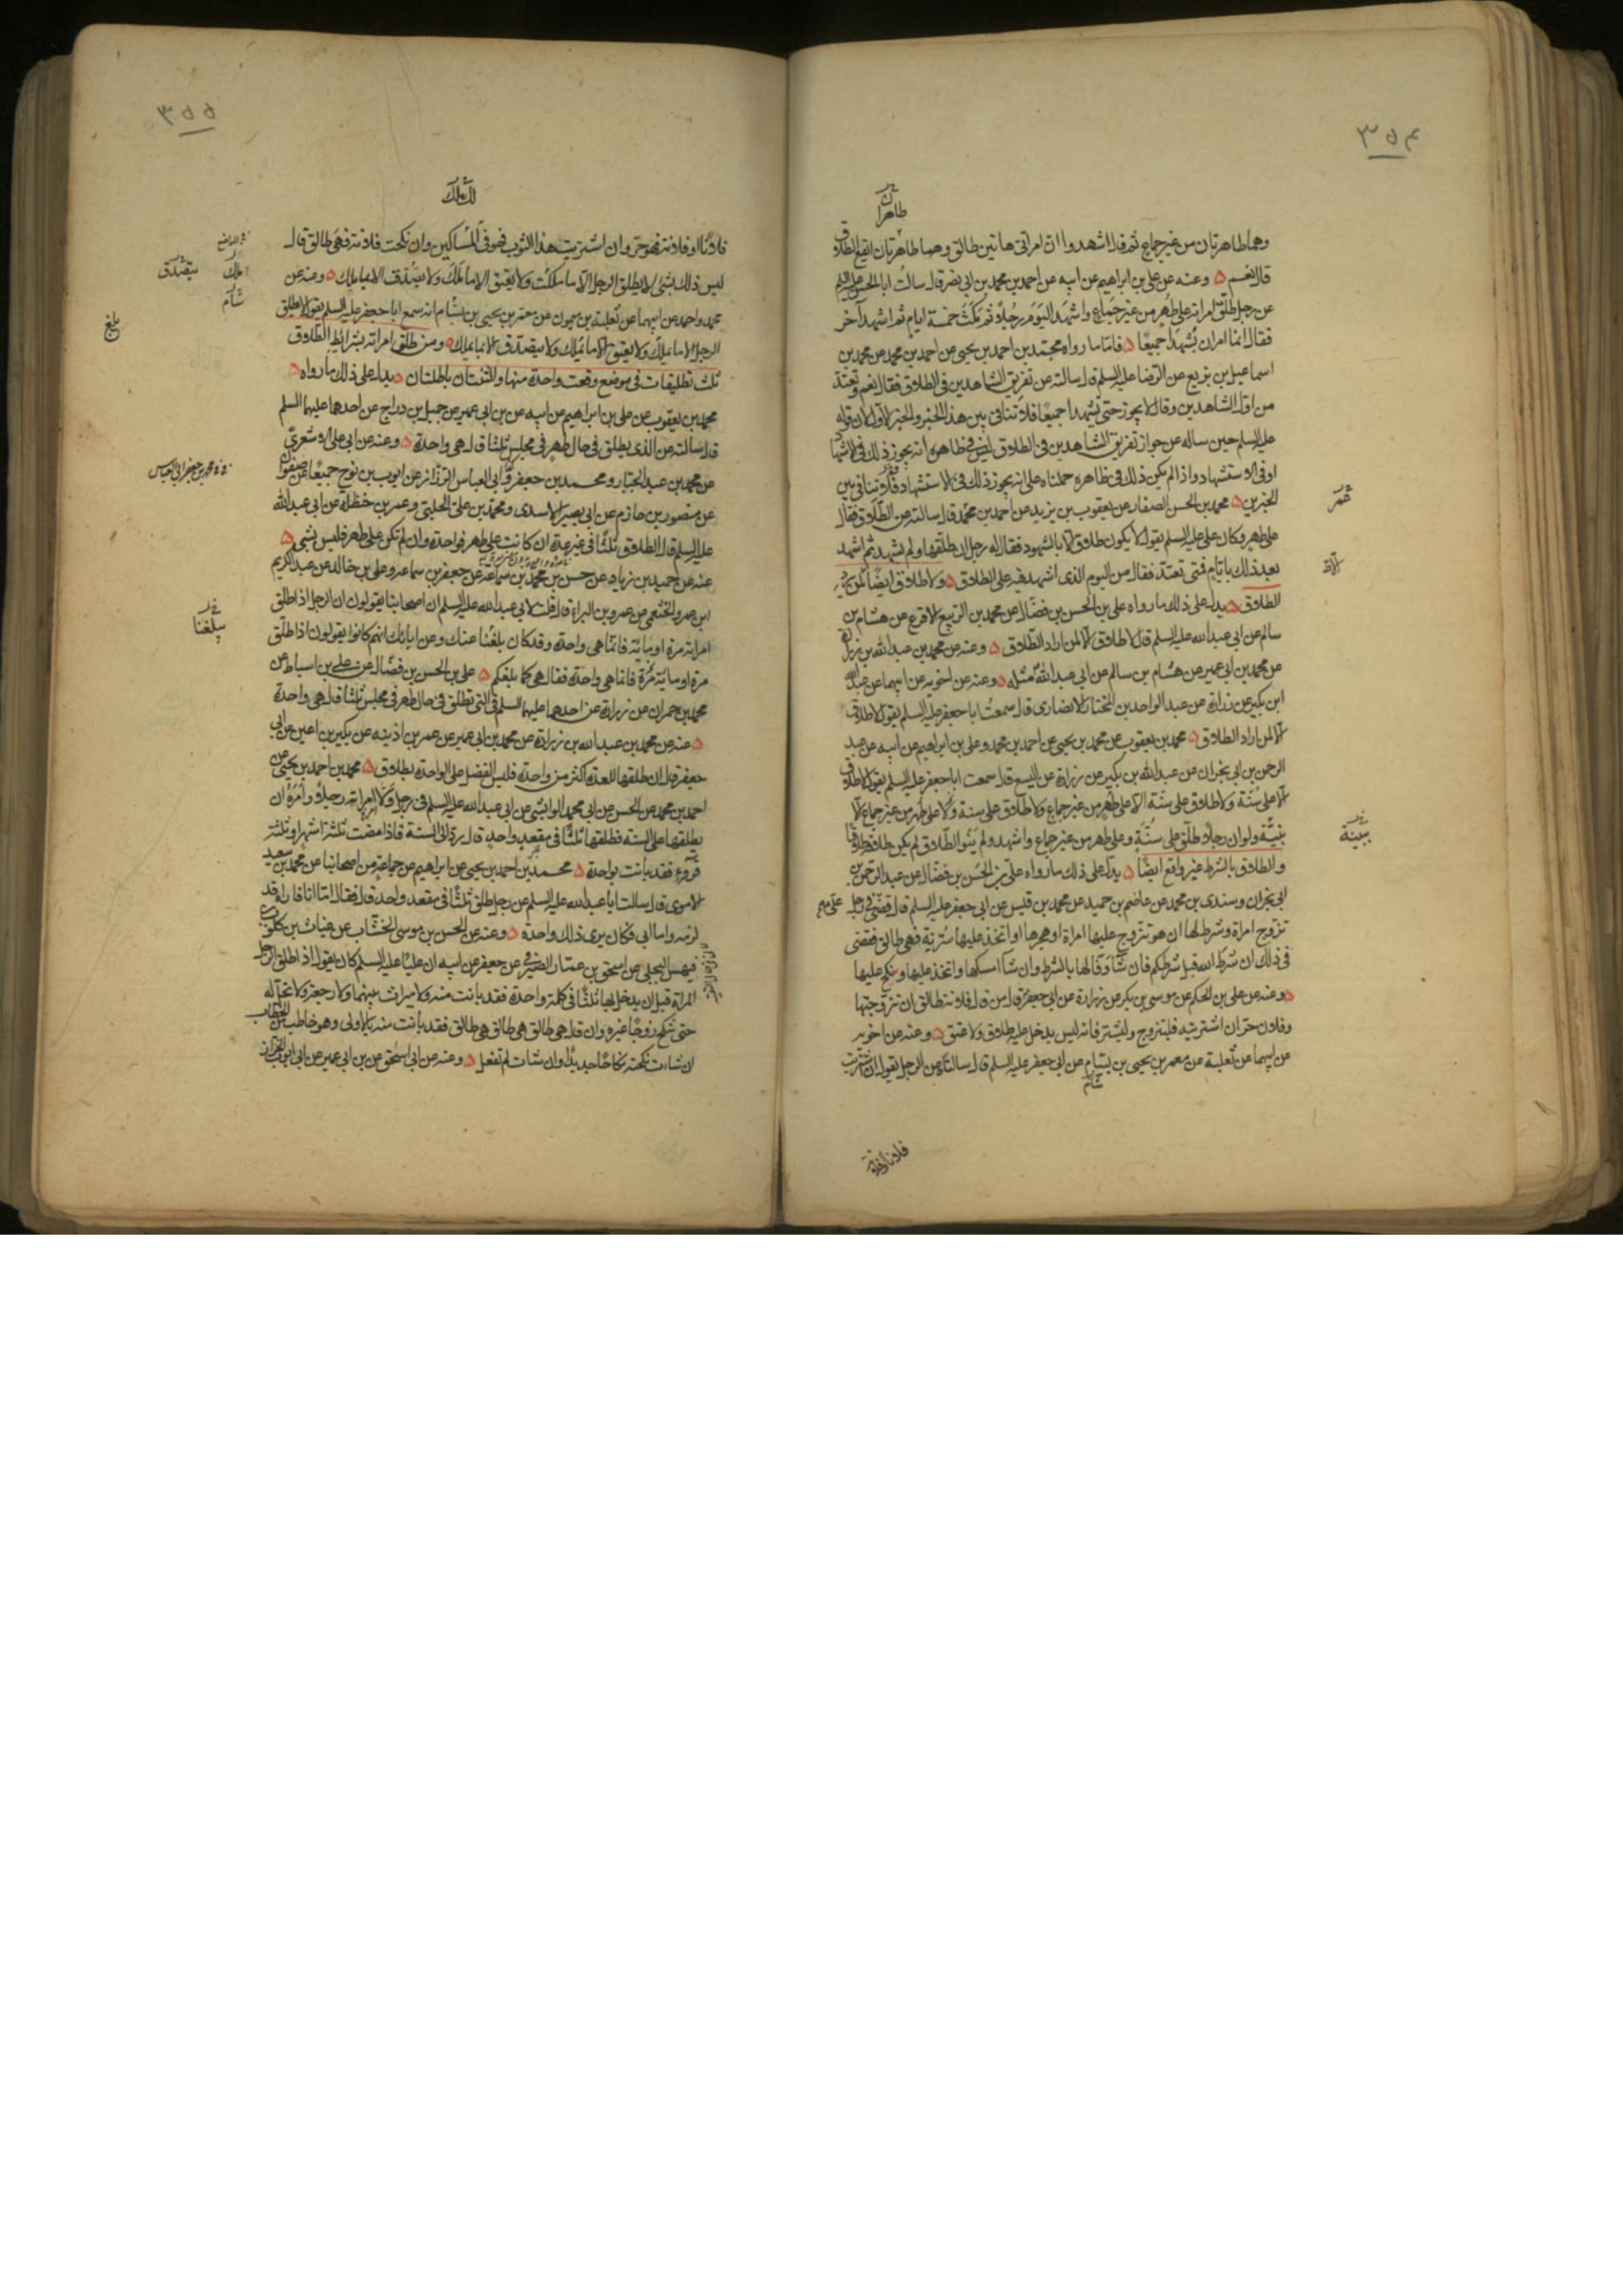 ٣٥٤
وهما طاهرتان من غير جماع ثم قال اشهدوا ان امراتى هاتين طالق وهما طاهرتان ايقع الطلاق
قال نعم وعنه عن على بن ابراهيم عن ابيه عن احمد بن محمد بن ابى نصر قال سالت ابا الحسن عليه السلم
عن رجل طلق امراته على طهر من غير جماع واشهد اليوم رجلا ثم مكث خمسة ايام ثم اشهد آخر
فقال انما امر ان يشهدا جميعا فاما ما رواه محمد بن احمد بن يحيى عن احمد بن محمد عن محمد بن
اسماعيل بن بزيع عن الرضا عليه السلم قال سالته عن تفريق الشاهدين فى الطلاق فقال نعم وتعتد
من اول الشاهدين وقال لا يجوز حتى يشهدا جميعا فلا تنافى بين هذا الخبر والخبر الاول لان قوله
عليه السلم حين ساله عن جواز تفريق الشاهدين فى الطلاق ليس فى ظاهره انه يجوز ذلك فى الاشهاد
او فى الاستشهاد واذا لم يكن ذلك فى ظاهره حملناه على انه يجوز ذلك فى الاستشهاد فلا تنافى بين
الخبرين محمد بن الحسن الصفار عن يعقوب بن يزيد عن احمد بن محمد قال سالته عن الطلاق فقال
على طهر وكان على عليه السلم يقول لا يكون طلاق الا بالشهود فقال له رجل ان طلقها ولم يشهد ثم اشهد
بعد ذلك بايام فمتى تعتد فقال من اليوم الذى اشهد فيه على الطلاق ولا طلاق ايضا لمن لم يرد
الطلاق يدل على ذلك ما رواه على بن الحسن بن فضال عن محمد بن الربيع الاقرع عن هشام بن
سالم عن ابى عبد الله عليه السلم قال لا طلاق الا لمن اراد الطلاق وعنه عن محمد بن عبد الله بن زرارة
عن محمد بن ابى عمير عن هشام بن سالم عن ابى عبد الله مثله وعنه عن اخويه عن ابيهما عن عبد الله
ابن بكير عن زرارة عن عبد الواحد بن المختار الانصارى قال سمعت ابا جعفر عليه السلم يقول لا طلاق
الا لمن اراد الطلاق محمد بن يعقوب عن محمد بن يحيى عن احمد بن محمد وعلى بن ابراهيم عن ابيه عن عبد
الرحمن بن ابى نجران عن عبد الله بن بكير عن زرارة عن اليسع قال سمعت ابا جعفر عليه السلم يقول لا طلاق
الا على سنة ولا طلاق على سنة الا على طهر من غير جماع ولا طلاق على سنة ولا على طهر من غير جماع الا
ببينة ولو ان رجلا طلق على سنة وعلى طهر من غير جماع واشهد ولم ينو الطلاق لم يكن طلاقه طلاقا
والطلاق بالشرط غير واقع ايضا يدل على ذلك ما رواه على بن الحسن بن فضال عن عبد الرحمن بن
ابى نجران وسندى بن محمد عن عاصم بن حميد عن محمد بن قيس عن ابى جعفر عليه السلم قال قضى فى رجل
تزوج امراة وشرط لها ان هو تزوج عليها امراة او هجرها او اتخذ عليها سرية فهى طالق فقضى
فى ذلك ان شرط الله قبل شرطكم فان شاء وفا لها بالشرط وان شا امسكها واتخذ عليها ونكح عليها
وعنه عن على بن الحكم عن موسى بن بكر عن زرارة عن ابى جعفر قال من قال فلانة طالق ان تزوجتها
وفلان حر ان اشتريته فليتزوج وليشتر فانه ليس يدخل عليه طلاق ولا عتق وعنه عن اخويه
عن ابيهما عن ثعلبة عن معمر بن يحيى بن بسام عن ابى جعفر عليه السلم قال سالته عن الرجل يقول ان اشتريت
سام
فلانا او فلانة
ببينة
٣٥٥
فلانا او فلانة فهو حر وان اشتريت هذا الثوب فهو فى المساكين وان نكحت فلانة فهى طالق قال
ليس ذلك بشئ لا يطلق الرجل الا ما ملكت ولا يعتق الا ما ملك ولا يصدق الا بما ملك وعنه عن
محمد واحمد عن ابيهما عن ثعلبة بن ميمون عن معمر بن يحيى بن بسام انه سمع ابا جعفر عليه السلم يقول لا يطلق
الرجل الا ما يملك ولا يعتق الا ما يملك ولا يتصدق الا بما يملك ومن طلق امراته بشرائط الطلاق
ثلث تطليقات فى موضع وقعت واحدة منها والثنتان باطلتان يدل على ذلك ما رواه
محمد بن يعقوب عن على بن ابراهيم عن ابيه عن بن ابى عمير عن جميل بن دراج عن احدهما عليهما السلم
قال سالته عن الذى يطلق فى حال طهر فى مجلس ثلثا قال هى واحدة وعنه عن ابى على الاشعرى
عن محمد بن عبد الجبار ومحمد بن جعفر وابى العباس الرزاز عن ايوب بن نوح جميعا عن صفوان
عن منصور بن حازم عن ابى بصير الاسدى ومحمد بن على الحلبى وعمر بن حنظلة عن ابى عبد الله
عليه السلم قال الطلاق ثلثا فى غير عدة ان كانت على طهر فواحدة وان لم تكن على طهر فليس بشئ
عنه عن حميد بن زياد عن حسن بن محمد بن سماعة عن جعفر بن سماعه وعلى بن خالد عن عبد الكريم
ابن عمرو الخثعمى عن عمرو بن البراء قال قلت لابى عبد الله عليه السلم ان اصحابنا يقولون ان الرجل اذا طلق
امراته مرة او مائة فانما هى واحدة وقد كان بلغنا عنك وعن ابائك انهم كانوا يقولون اذا طلق
مرة او مائة مرة فانما هى واحدة فقال هى كما بلغكم على بن الحسن بن فضال عن على بن اسباط عن
محمد بن حمران عن زرارة عن احدهما عليهما السلم فى التى تطلق فى حال طهر فى مجلس ثلثا قال هى واحدة
عنه عن محمد بن عبد الله بن زرارة عن محمد بن ابى عمير عن عمر بن اذينه عن بكير بن اعين عن ابى
جعفر قال ان طلقها للعدة اكثر من واحدة فليس الفضل على الواحدة بطلاق محمد بن احمد بن يحيى عن
احمد بن محمد عن الحسن عن ابى محمد الوابشى عن ابى عبد الله عليه السلم فى رجل ولا امراته رجلا وامره ان
يطلقها على السنه فطلقها ثلثا فى مقعد واحد قال يرد الى السنة فاذا مضت ثلثة اشهر او ثلثة
قروء فقد بانت بواحدة محمد بن احمد بن يحيى عن ابراهيم عن جماعة من اصحابنا عن محمد بن سعيد
الاموى قال سالت ابا عبد الله عليه السلم عن رجل طلق ثلثا فى مقعد واحد قال فقال اما انا فاراه قد
لزمه واما ابى فكان يرى ذلك واحدة وعنه عن الحسن بن موسى الخشاب عن غياث بن كلوب
فيهس البجلى عن اسحق بن عمار الصيرفى عن جعفر عن ابيه ان عليا عليه السلم كان يقول اذا طلق الرجل
المراة قبل ان يدخل بها ثلثا فى كلمة واحدة فقد بانت منه ولا ميراث بينهما ولا رجعة ولا تحل له
حتى تنكح زوجا غيره وان قال هى طالق هى طالق هى طالق فقد بانت منه بالاولى وهو خاطب من الخطاب
ان شاءت نكحته نكاحا جديدا وان شات لم تفعل وعنه عن ابى اسحق عن بن ابى عمير عن ابى ايوب الخزاز
يتصدق
يملك
سام
بلغ
بلغنا